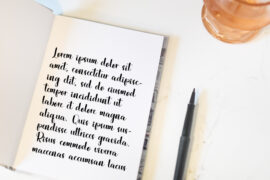 Lorem ipsum dolor sit
amet, consectetur adipisc-
ing elit, sed do eiusmod
tempor incididunt ut
labore et dolore magna
aliqua. Quis ipsum sus-
pendisse ultrices gravida.
Risus commodo viverra
maecenas accumsan lacus